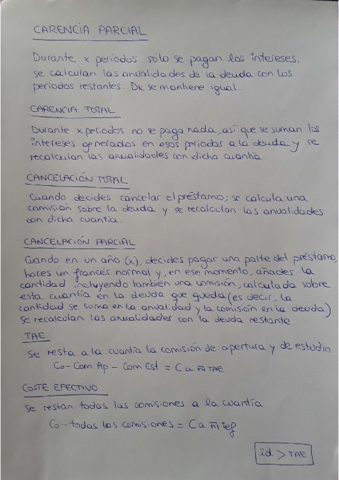 CARENCIA PARCIAL
Durante x periodos sólo se pagan los intereses.
se calculan las anualidades de la deuda con los
periodos restantes. Dk se mantiene igual.
CARENCIA TOTAL
Durante x periodos no se paga nada, asi que se suman los
intereses generados en esos periodos a la deuda y se
recalculan las anualidades con dicha cuantía.
CANCELACIÓN TOTAL
Cuando decides cancelar el préstamo; se calcula una
comisión sobre la deuda y se recalculan las anualidades
con dicha cuantía.
CANCELACIÓN PARCIAL
Cuando en un año (x), decides pagar una parte del préstamo
haces un francés normal y, en ese momento, añades la
cantidad, incluyendo también una comisión, calculada sobre
esta cuantía en la deuda que queda (es decir, la
cantidad se suma en la anualidad y la comisión en la deuda)
Se recalculan las anualidades con la deuda restante
TAE
Se resta a la cuantía la comisión de apertura y de estudio
Co - Com Ap - Com Est = C a TAE
COSTE EFECTIVO
Se restan todas las comisiones a la cuantía
Co - todas las comisiones = C a ief
id > TAE